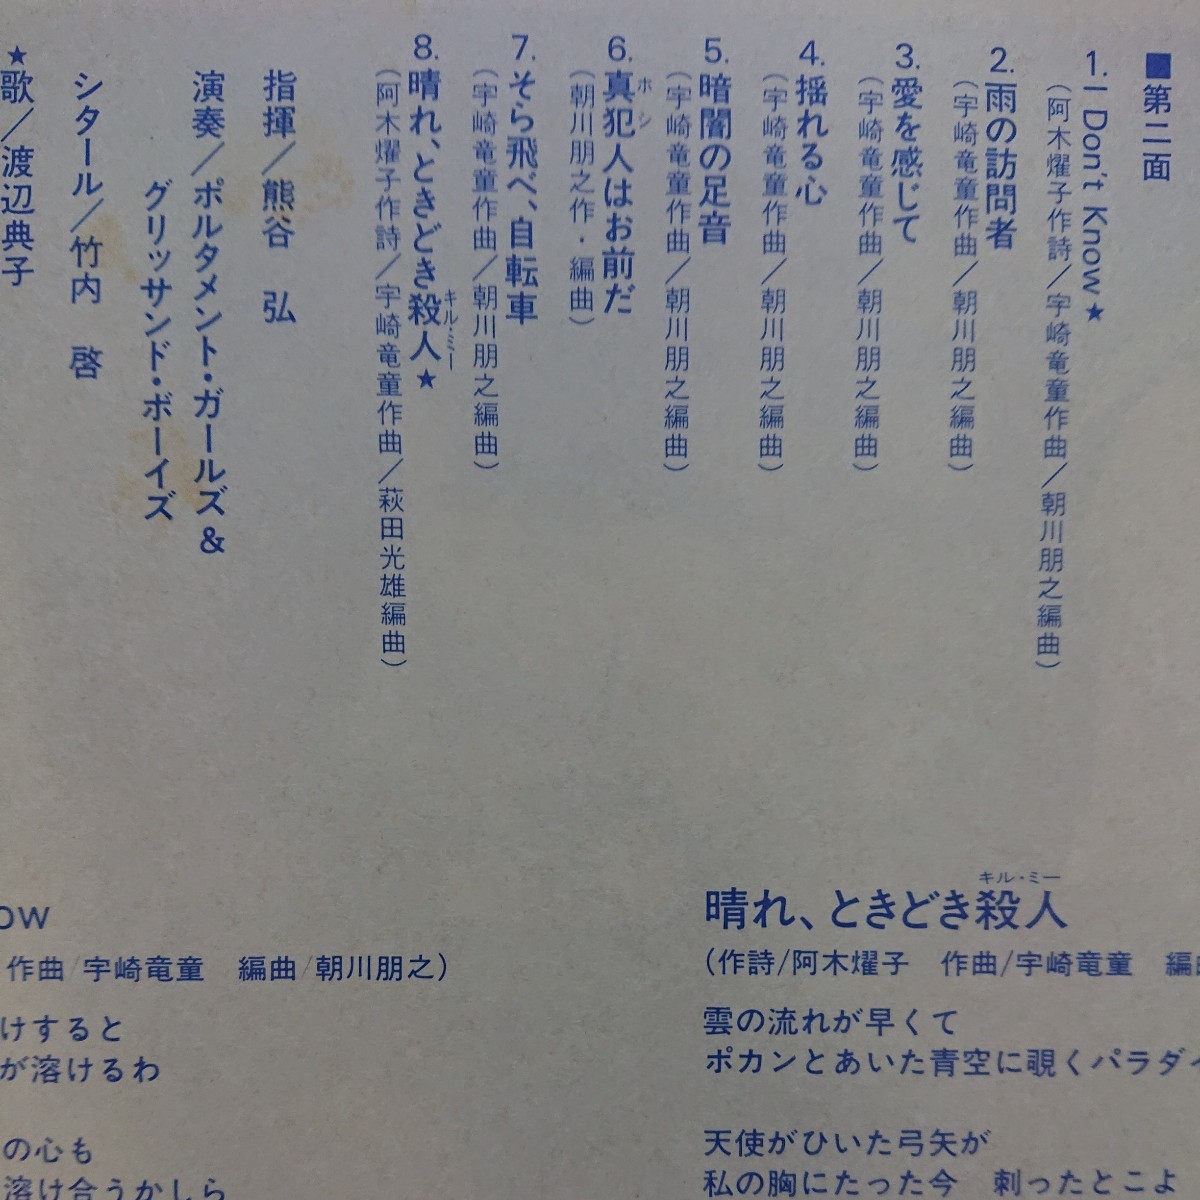 ■第二面
1. I Don't Know★
(阿木燿子作詩/宇崎竜童作曲/朝川朋之編曲)
2. 雨の訪問者
(宇崎竜童作曲/朝川朋之編曲)
3. 愛を感じて
(宇崎竜童作曲/朝川朋之編曲)
4. 揺れる心
(宇崎竜童作曲/朝川朋之編曲)
5. 暗闇の足音
(宇崎竜童作曲/朝川朋之編曲)
ホシ
6. 真犯人はお前だ
(朝川朋之作・編曲)
7. そら飛べ、自転車
(宇崎竜童作曲/朝川朋之編曲)
キル・ミー
8. 晴れ、ときどき殺人★
(阿木燿子作詩/宇崎竜童作曲/萩田光雄編曲)
指揮/熊谷 弘
演奏/ポルタメント・ガールズ&
グリッサンド・ボーイズ
シタール/竹内 啓
★歌/渡辺典子
キル・ミー
晴れ、ときどき殺人
(作詩/阿木燿子 作曲/宇崎竜童 編曲
雲の流れが早くて
ポカンとあいた青空に覗くパラダイ
天使がひいた弓矢が
私の胸にたった今 刺ったとこよ
ow
作曲/宇崎竜童 編曲/朝川朋之)
けすると
が溶けるわ
の心も
溶け合うかしら